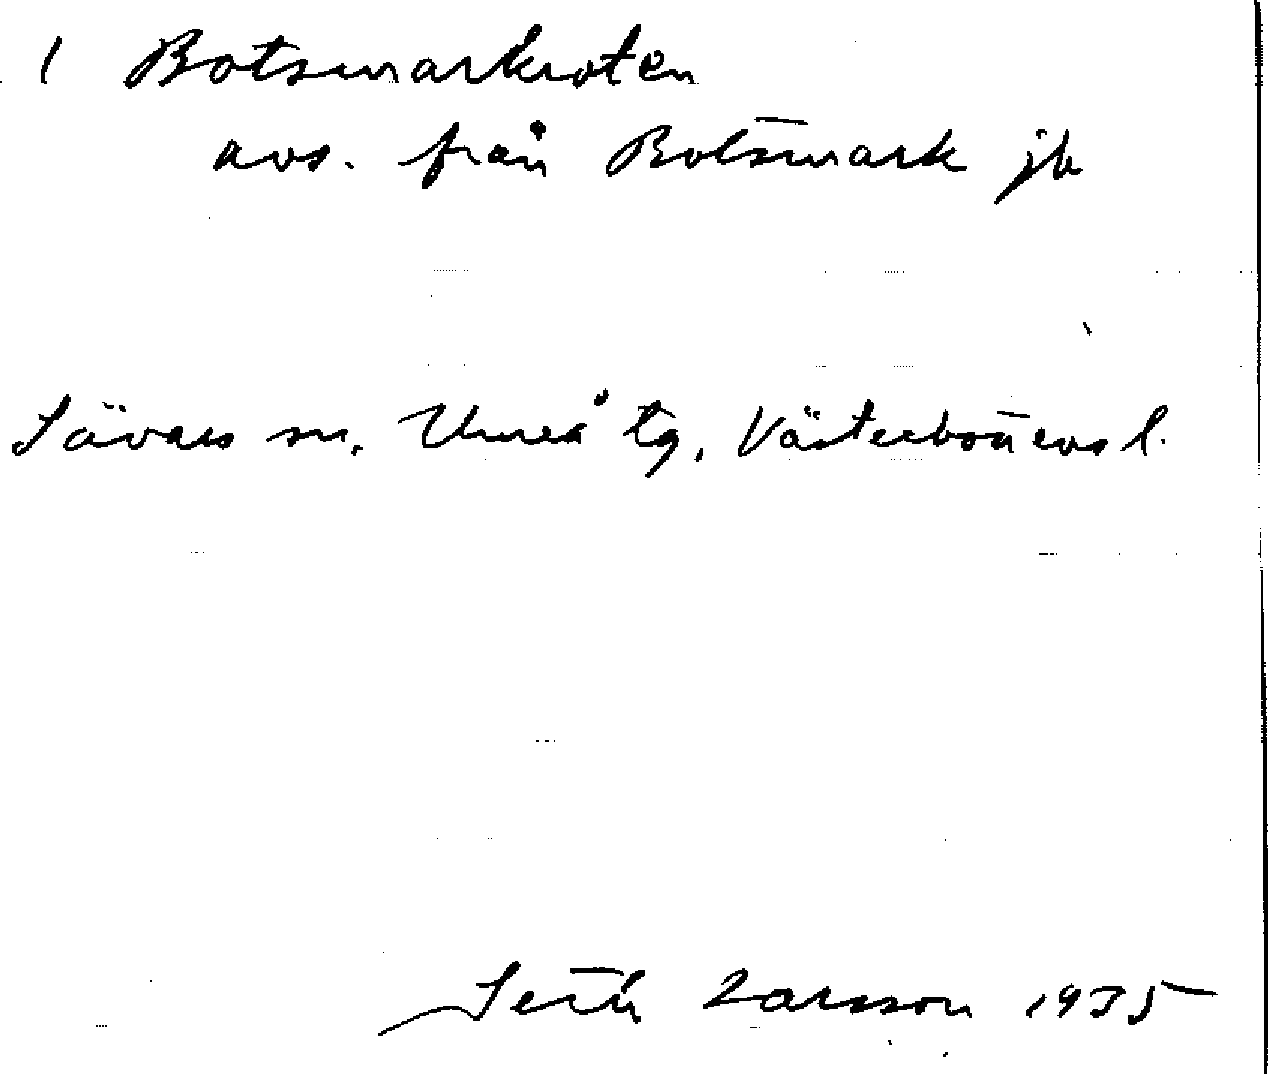 1 Botsmarkroten
avs. från Botsmark jb
Sävars sn, Umeå tg, Västerbottens l.
Seth Larsson 1935